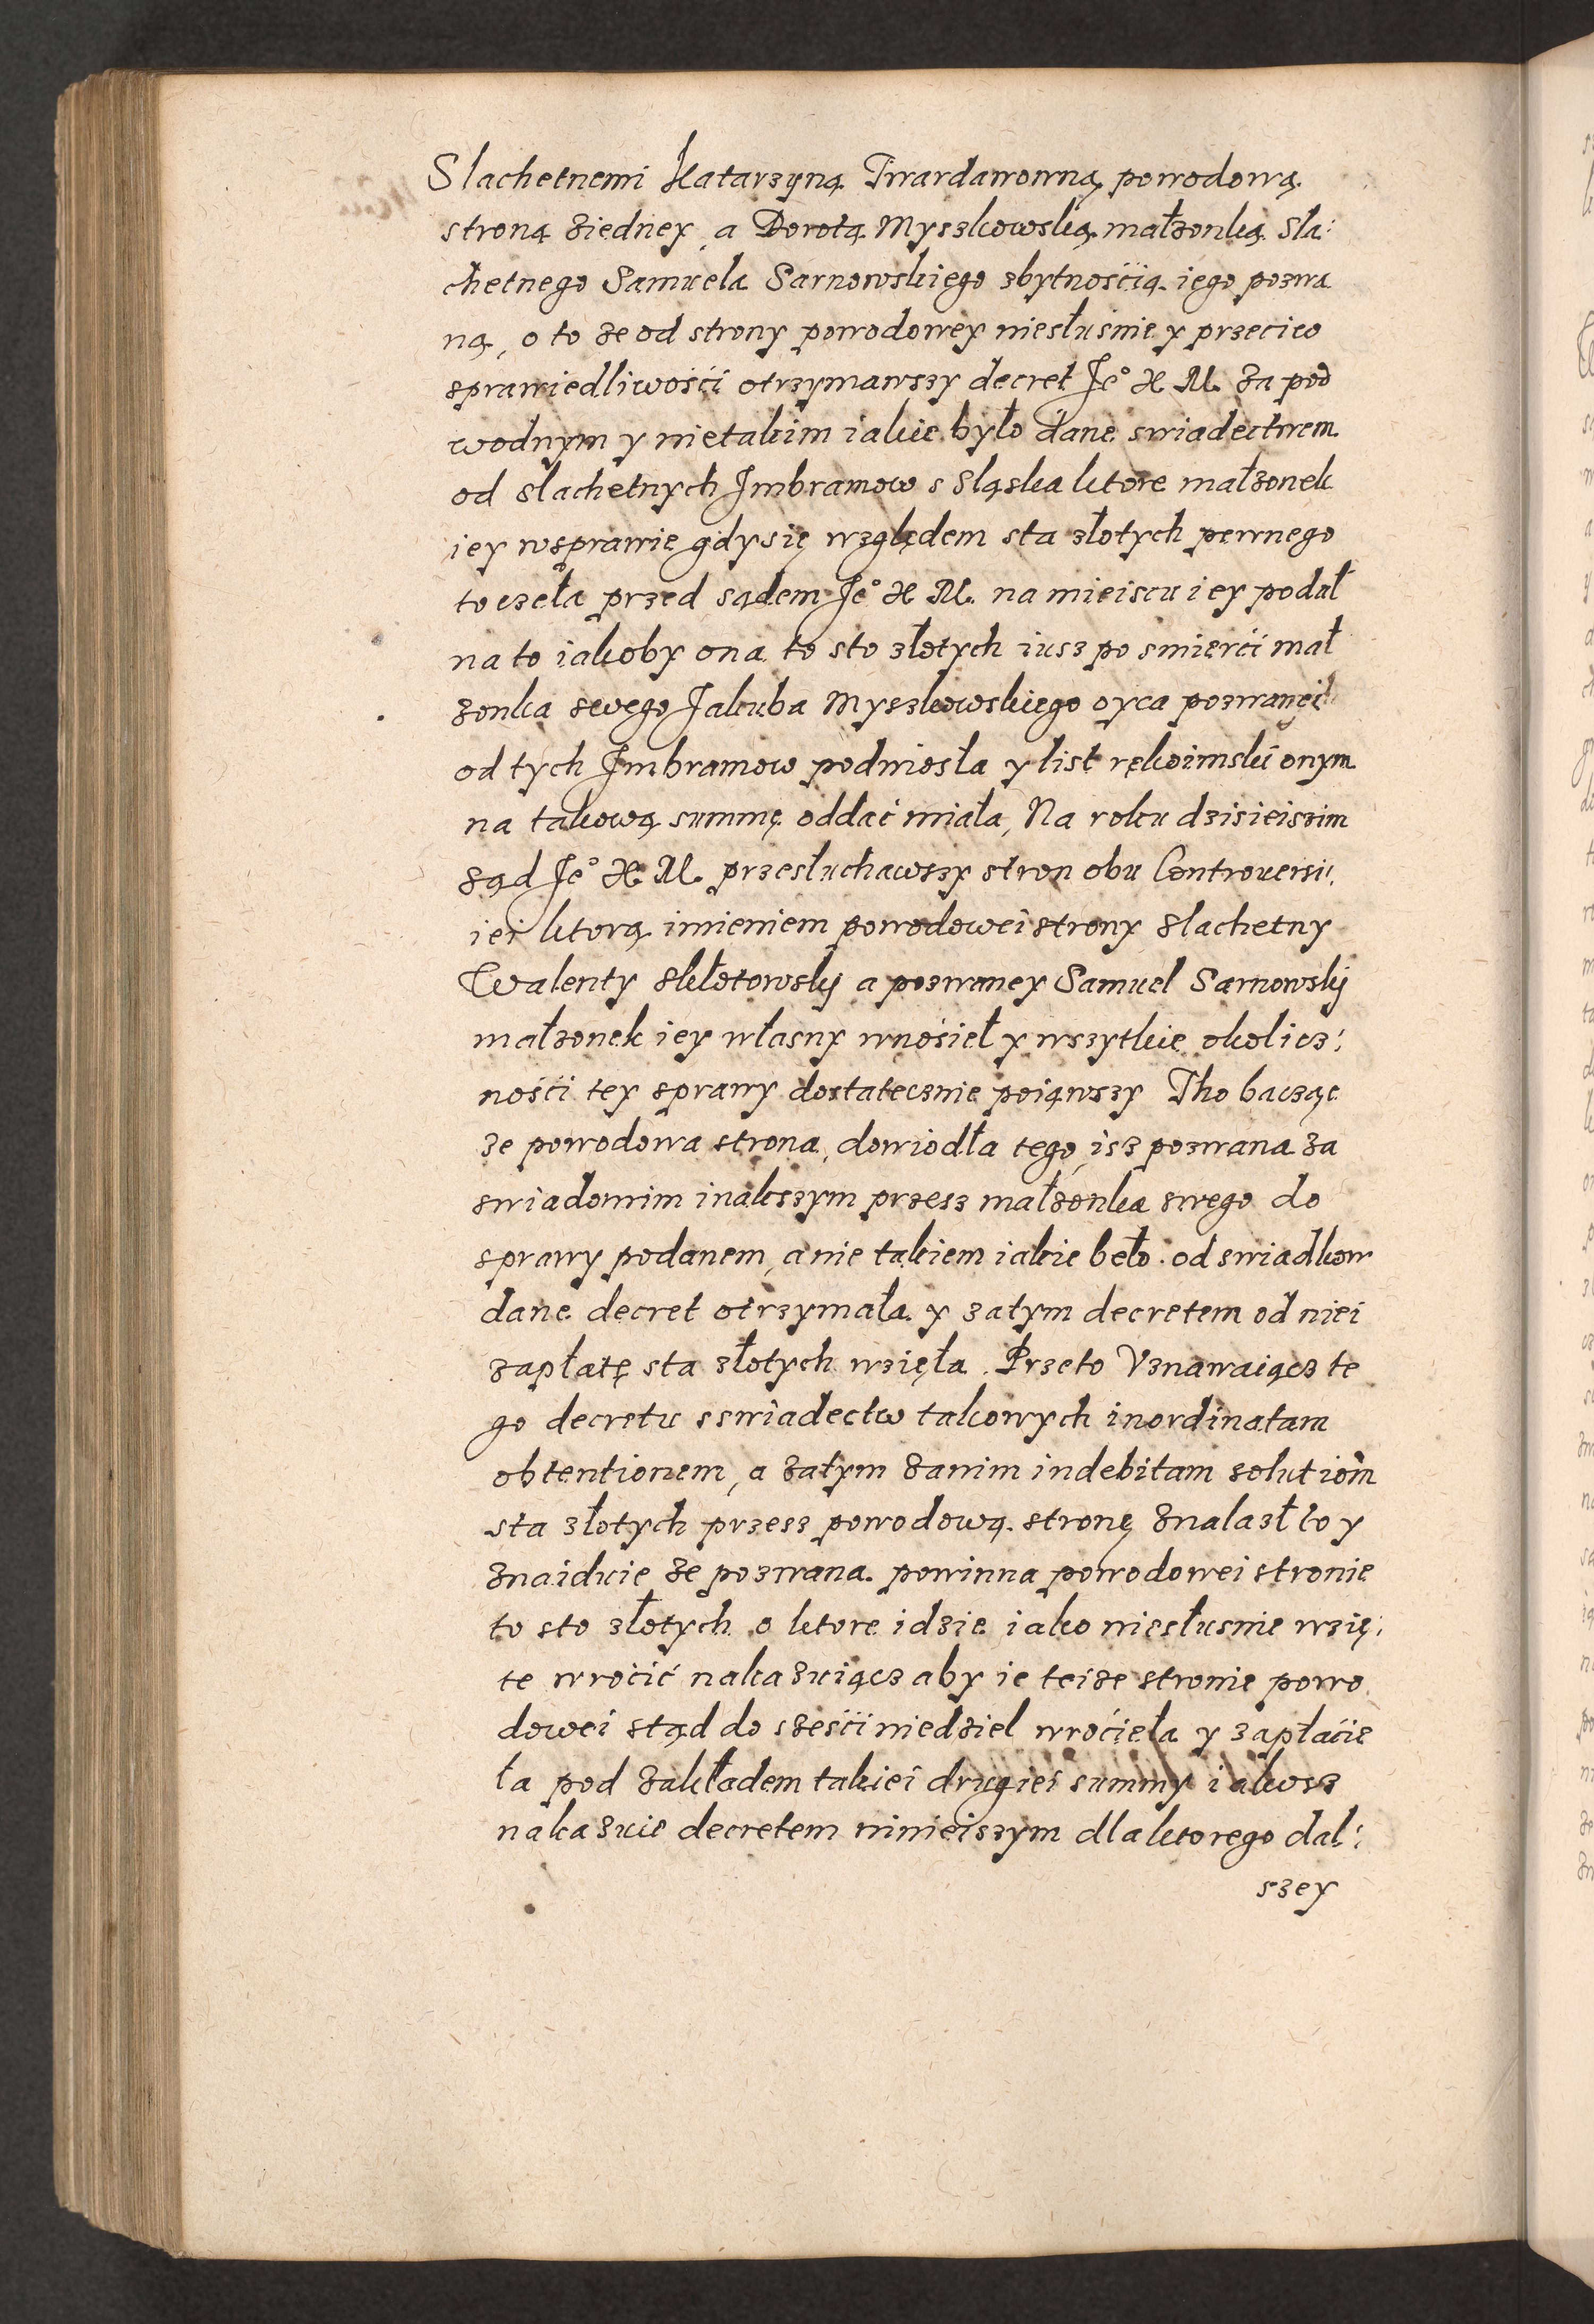 Slachetnemi Katarzyną Twardawowną powodową
stroną ziedney, a Dorotą Myszkowską małzonką Sla:
chetnego Samuela Sarnowskiego zbytnością iego pozwa
ną, o to ze od strony powodowey niesłusnie y przeciw
sprawiedliwości otrzymawszy decret Je° K M. za pod
wodnym y nietakim iakie było dane swiadectwem
od slachetnych Jmbramow s Sląska ktore małzonek
iey wsprawie gdy się względem sta złotych pewnego
toczeła przed sądem Je° K M. na mieiscu iey podał
na to iakoby ona to sto złotych iusz po smierci mał
zonka swego Jakuba Myszkowskiego oyca pozwanei
od tych Jmbramow podniosła y list rękoimski onym
na takową summę oddać miała, Na roku dzisieiszim
sąd Je° K. M. przesłuchawszy stron obu Controuersi:
iei ktorą imieniem powodowei strony slachetny
Walenty Skłotowskij a pozwaney Samuel Sarnowskij
małzonek iey własny wnosieł y wszytkie okolicz:
ności tey sprawy dostatecznie poiąwszy Tho bacząc
ze powodowa strona, dowiodła tego, isz pozwana za
swiadomim inakszym przesz małzonka swego do
sprawy podanem, a nie takiem iakie beło od swiadkow
dane decret otrzymała y zatym decretem od niei
zapłatę sta złotych wzięła. Przeto Vznawaiącz te
go decretu sswiadectw takowych inordinatam
obtentionem, a zatym zanim indebitam solutiom
sta złotych przesz powodową stronę znalazł to y
znaiduie ze pozwana powinna powodowei stronie
to sto złotych o ktore idzie iako niesłusnie wzię:
te wrocić nakazuiącz aby ie teize stronie powo
dowei stąd do szesci niedziel wrocieła y zapłacie
ła pod zakładem takiei drugiei summy iakosz
nakazuie decretem ninieiszym dla ktorego dal:
szey